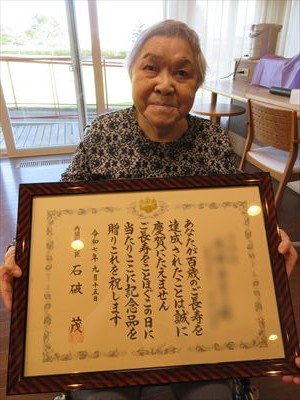 あなたが百歳のご長寿を
達成されたことは誠に
慶賀にたえません
ご長寿をことほぐこの日に
当たりここに記念品を
贈りこれを祝します
令和七年九月十五日
石破 茂